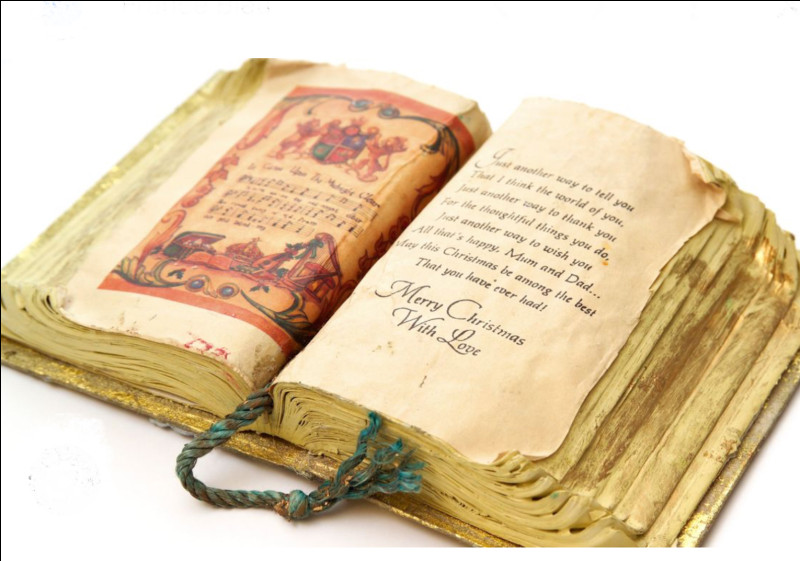 Just another way to tell you
That I think the world of you,
Just another way to thank you
For the thoughtful things you do,
Just another way to wish you
All that's happy, Mum and Dad...
May this Christmas be among the best
That you have ever had!
Merry Christmas
With Love